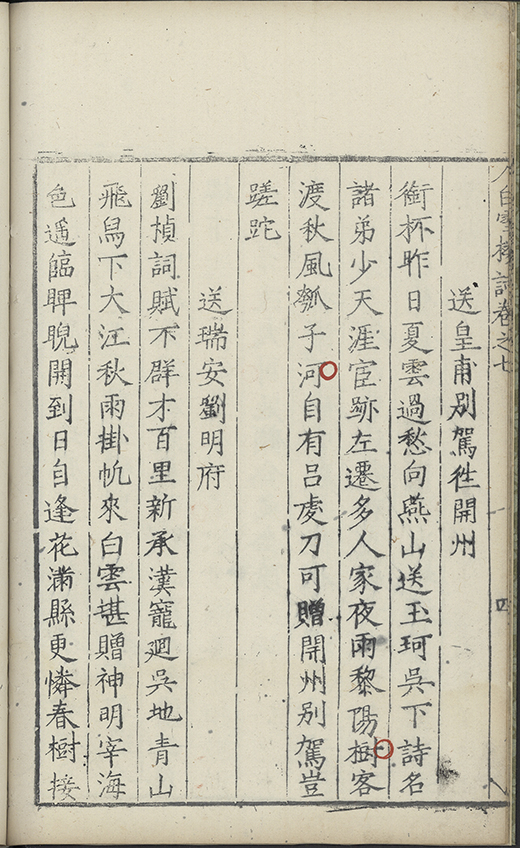 白雪樓詩卷之七
四
送皇甫別駕徃開州
銜杯昨日夏雲過愁向燕山送玉珂吳下詩名
諸弟少天涯宦跡左遷多人家夜雨黎陽樹客
渡秋風瓠子河自有呂虔刀可贈開州別駕豈
蹉跎
送瑞安劉明府
劉楨詞賦不群才百里新承漢寵廻吳地青山
飛舄下大江秋雨掛帆來白雲堪贈神明宰海
色遥臨睥睨開到日自逢花滿縣更憐春樹接